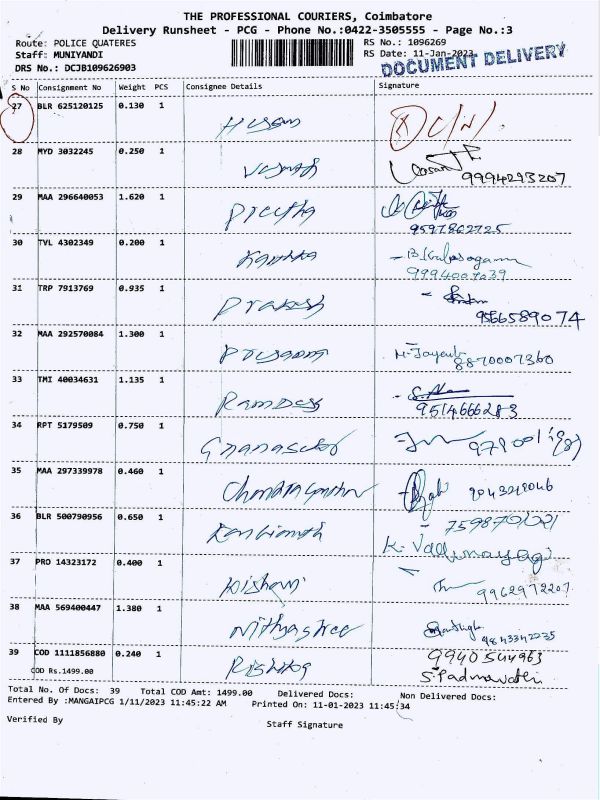 THE PROFESSIONAL COURIERS, Coimbatore
Delivery Runsheet - PCG - Phone No.:0422-3505555 - Page No.:3
Route: POLICE QUATERES RS No.: 1096269
Staff: MUNIYANDI RS Date: 11-Jan-2023
DRS No.: DCJB109626903 DOCUMENT DELIVERY
S No Consignment No Weight PCS Consignee Details Signature
27 BLR 625120125 0.130 1
28 MYD 3032245 0.250 1
9994293207
29 MAA 296640053 1.620 1
Preetha
9597862725
30 TVL 4302349 0.200 1
9994007039
31 TRP 7913769 0.935 1
Prakash
9566589074
32 MAA 292570084 1.300 1
8870007360
33 TMI 40034631 1.135 1
Ramdass
9514666283
34 RPT 5179509 0.750 1
35 MAA 297339978 0.460 1
9043219046
36 BLR 500790956 0.650 1
K. Vallinayagi
37 PRO 14323172 0.400 1
9962972207
38 MAA 569400447 1.380 1
Nithyashree 9843342235
39 COD 1111856880 0.240 1 9940544963
COD Rs.1499.00 S.Padmavathi
Total No. Of Docs: 39 Total COD Amt: 1499.00 Delivered Docs: Non Delivered Docs:
Entered By :MANGAIPCG 1/11/2023 11:45:22 AM Printed On: 11-01-2023 11:45:34
Verified By
Staff Signature